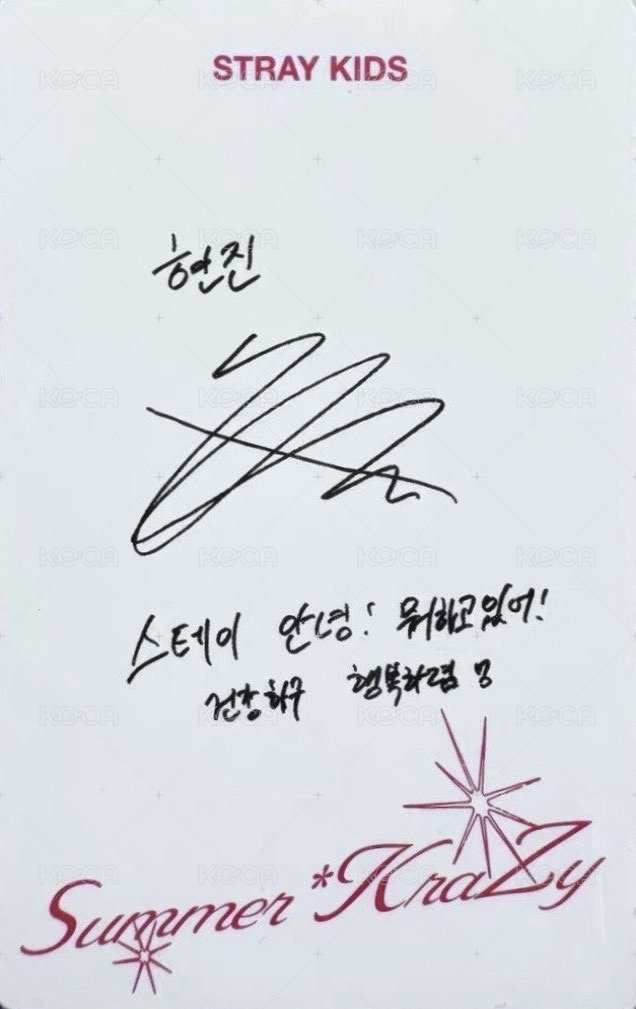 STRAY KIDS
현진
스테이 안녕! 뭐하고있어!
건강하구 행복하렴
Summer *KraZy
KOCA